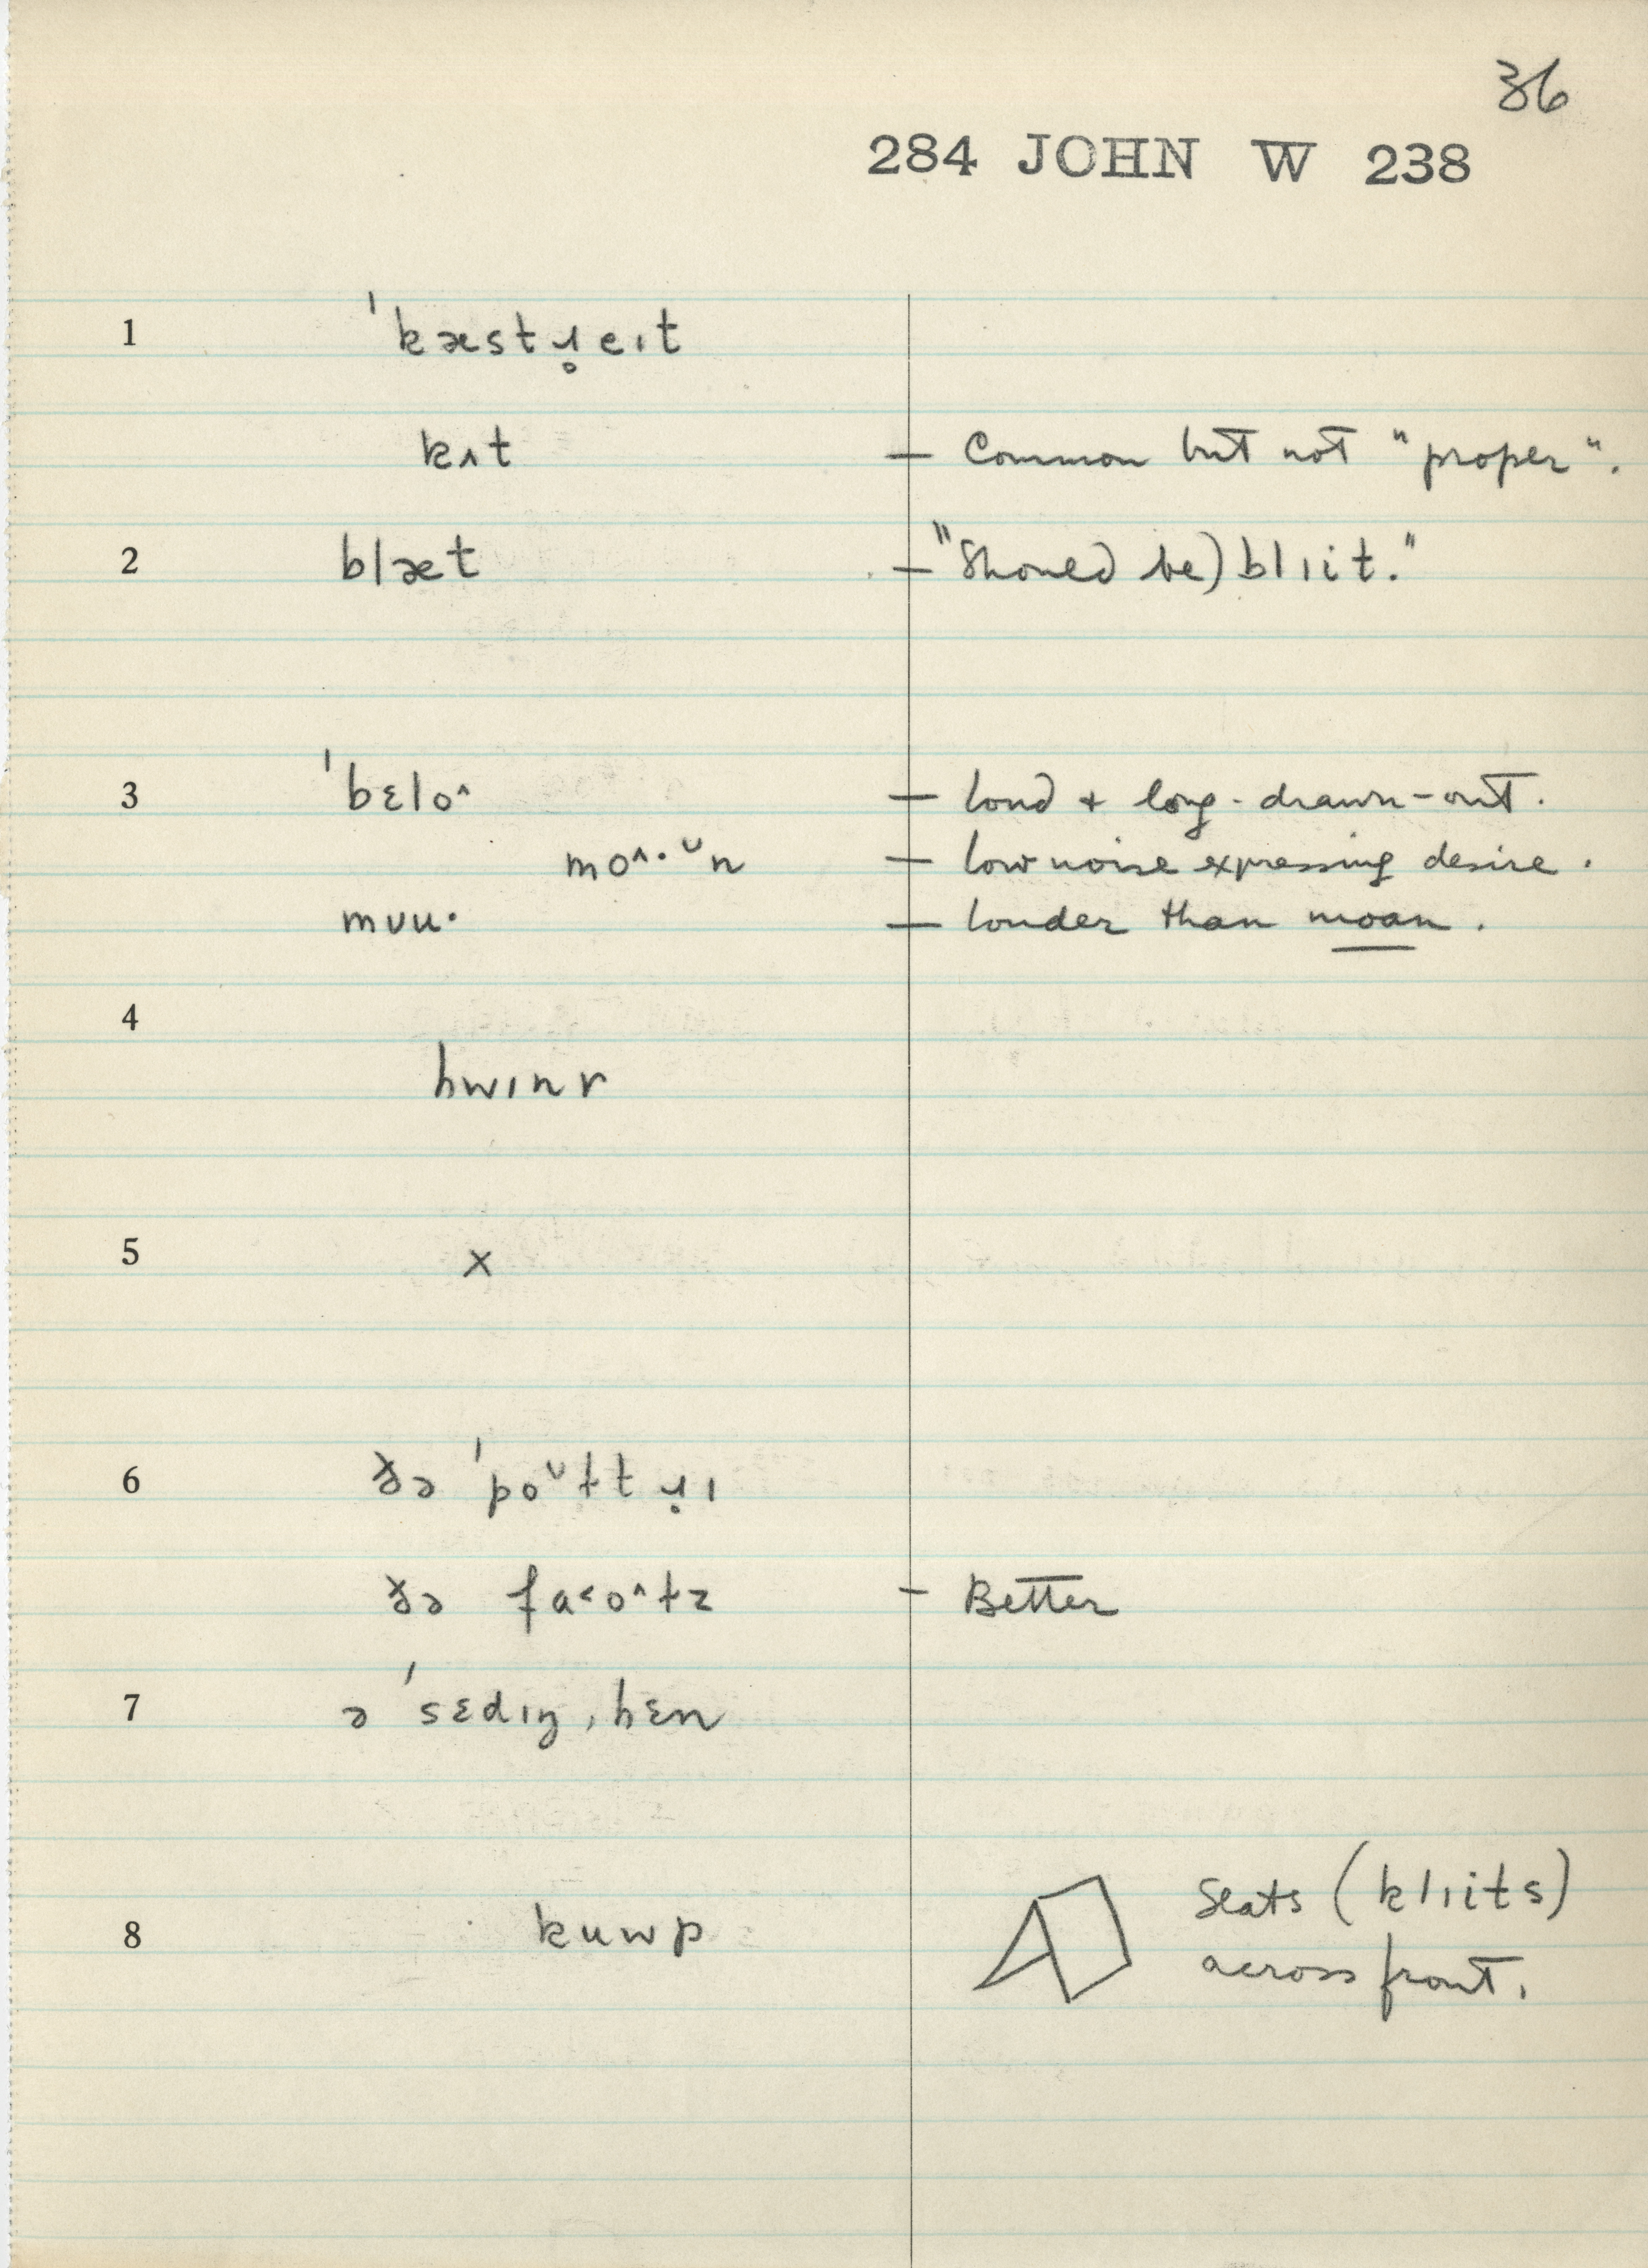 36
284 JOHN W 238
1 ˈkæstɹ̥eɪt
kʌt — Common but not "proper".
2 blæt — "Should be) blɪit."
3 ˈbɛlo^ — loud + long-drawn-out.
mo^·ᴗn — low noise expressing desire.
mʊu· — louder than moan.
4
hwɪnr
5 x
6 ðə ˈpoᴗɫtɹ̣ɪ
ðə fa˂o^ɫz — Better
7 ə ˈsɛdɪŋ ˌhɛn
8 kuwp Seats (klɪits)
across front.